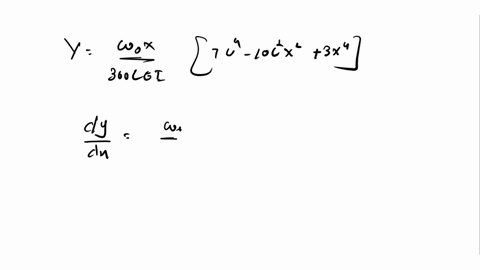 Y = ω₀x / 360LEI [7L⁴ - 10L²x² + 3x⁴]
dy/dx = ω₀